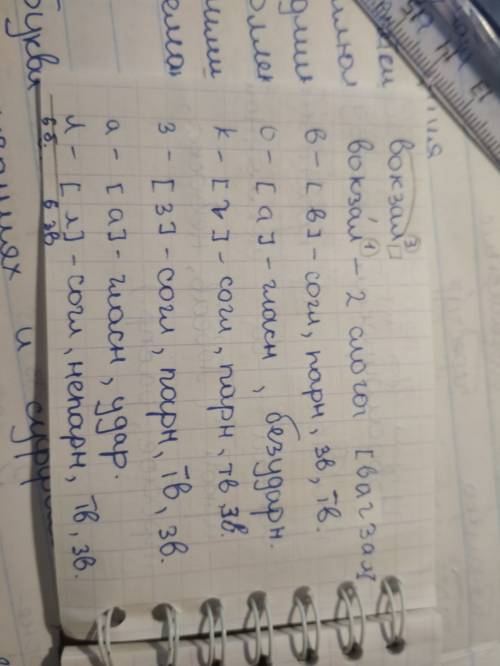 вокзал³
вокза́л¹ – 2 слога [вагзал]
в – [в] – согл, парн, зв, тв.
о – [а] – гласн, безударн.
к – [г] – согл, парн, тв, зв.
з – [з] – согл, парн, тв, зв.
а – [а] – гласн, удар.
л – [л] – согл, непарн, тв, зв.
6 б. 6 зв
и